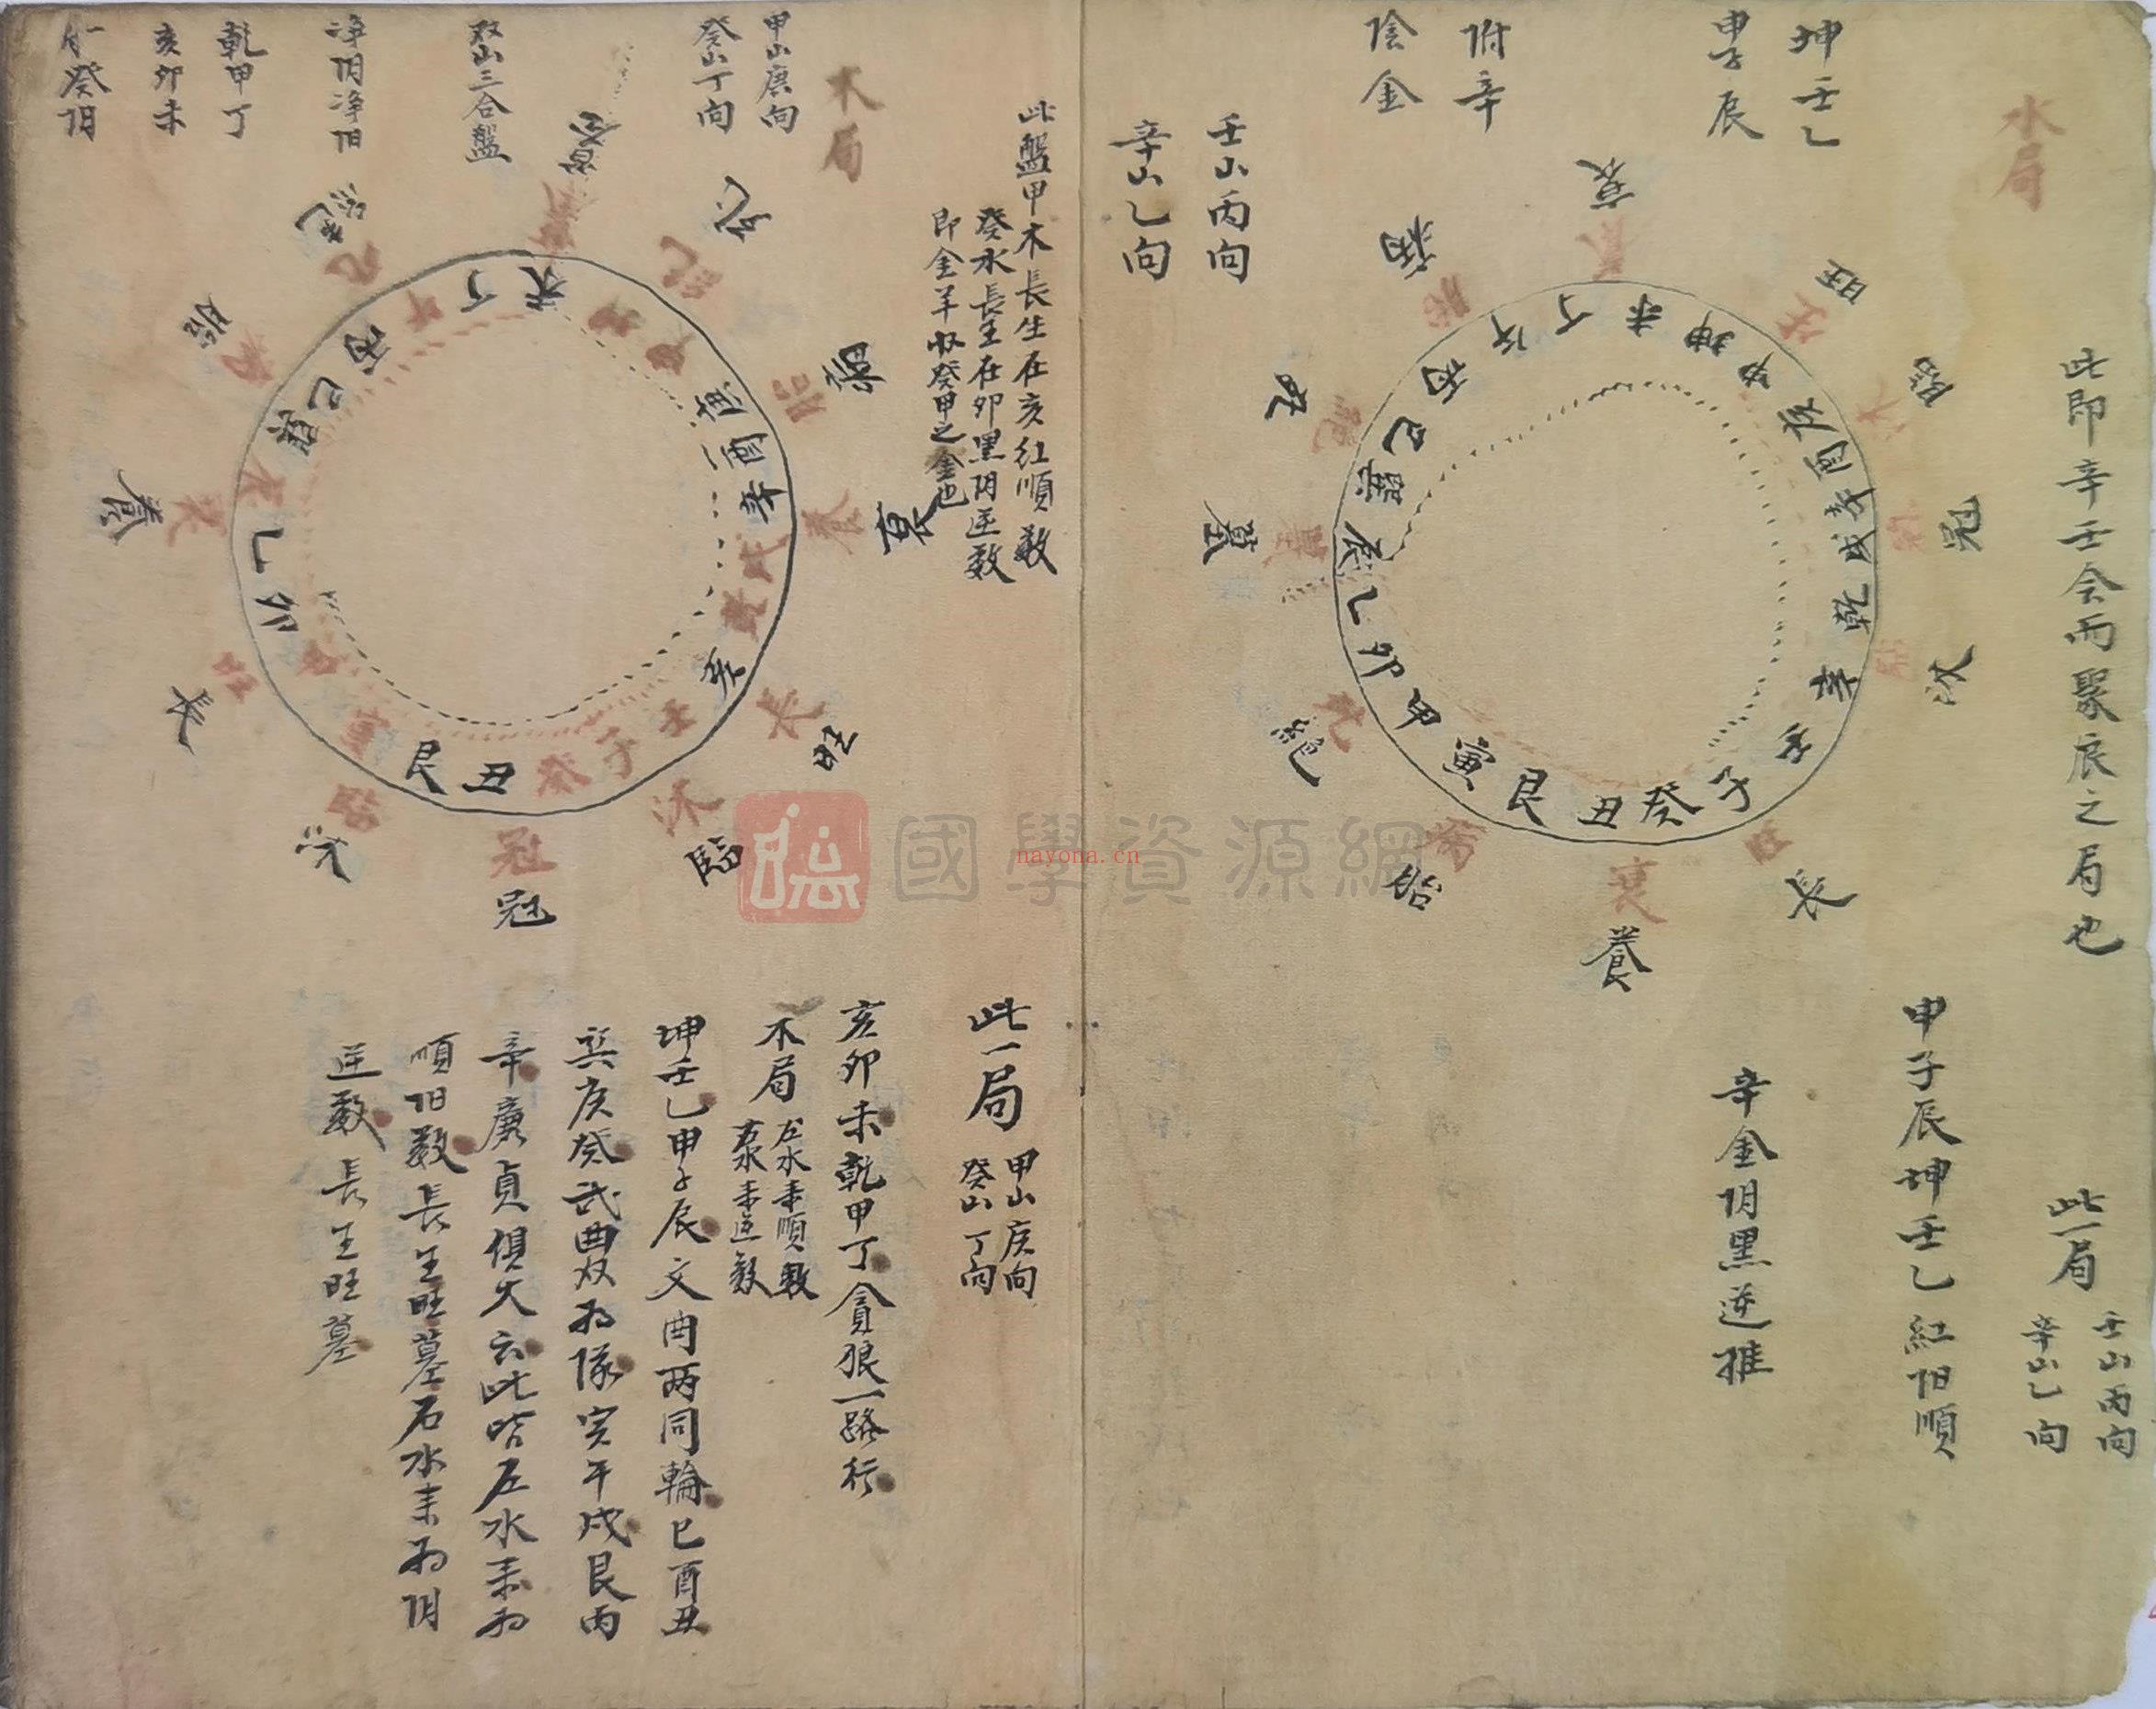 水局
坤壬乙
申子辰
附辛
陰金
壬山丙向
辛山乙向
此即辛壬会而聚辰之局也
衰
旺
冠
沐
长
養
胎
絕
墓
死
病
未
丁
午
丙
巳
巽
辰
乙
卯
甲
寅
艮
丑
癸
子
壬
亥
乾
戌
辛
酉
庚
申
坤
衰
此一局
壬山丙向
辛山乙向
申子辰坤壬乙紅阳順
辛金阴黑逆推
木局
此盤甲木長生在亥紅順数
癸水長生在卯黑阴逆数
即金羊收癸甲之金也
甲山庚向
癸山丁向
双山三合盤
净阴净阳
乾甲丁
亥卯未
癸阴
衰
旺
臨
冠
沐
長
養
丁
丙
巳
巽
乙
卯
艮
丑
癸
子
壬
亥
辛
酉
庚
冠
沐
臨
此一局
甲山庚向
癸山丁向
亥卯未乾甲丁貪狼一路行
木局
左水来順数
右水来逆数
坤壬乙申子辰文曲两同輪巳酉丑
巽庚癸武曲双为隊寅午戌艮丙
辛廉貞俱火云此皆左水来为
順阳数長生旺墓右水来为阴
逆数長生旺墓
國學資源網
nayona.cn